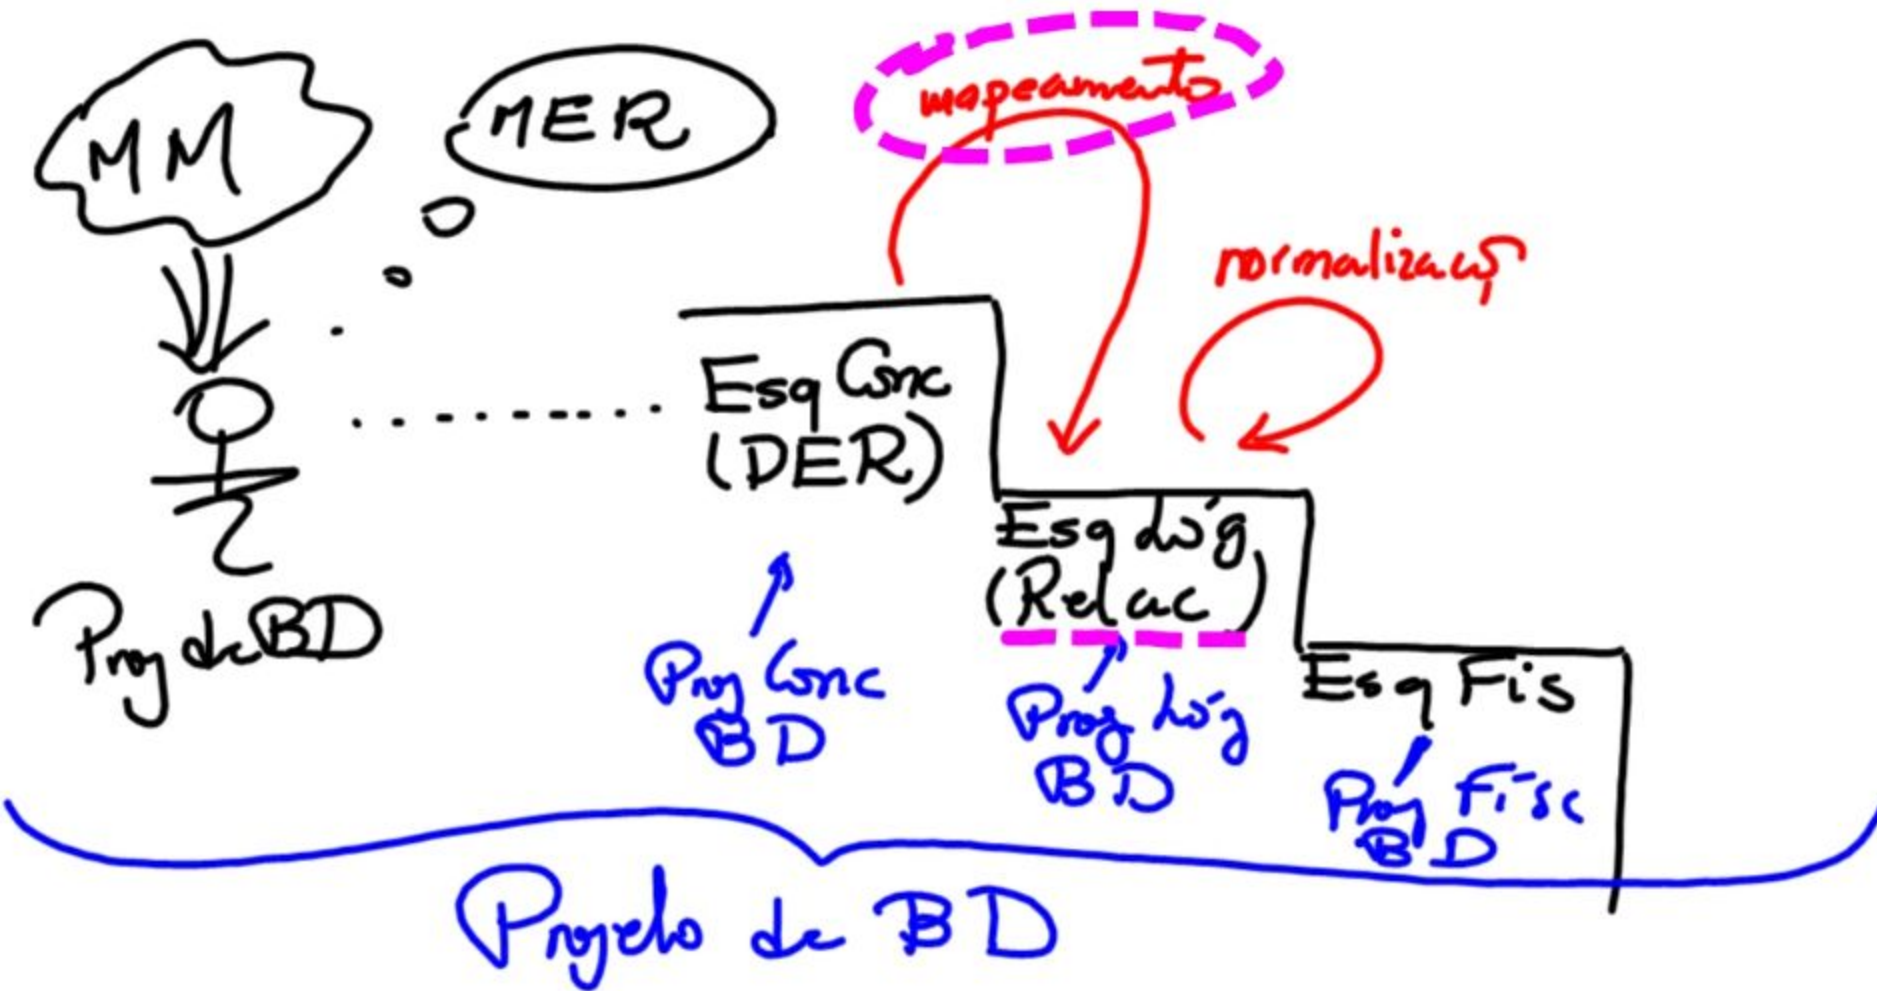 MM
MER
mapeamento
normalizaç
Esq Conc
(DER)
Esq Lóg
(Relac)
Esq Fis
Proj de BD
Proj Conc
BD
Proj Lóg
BD
Proj Físc
BD
Projeto de BD